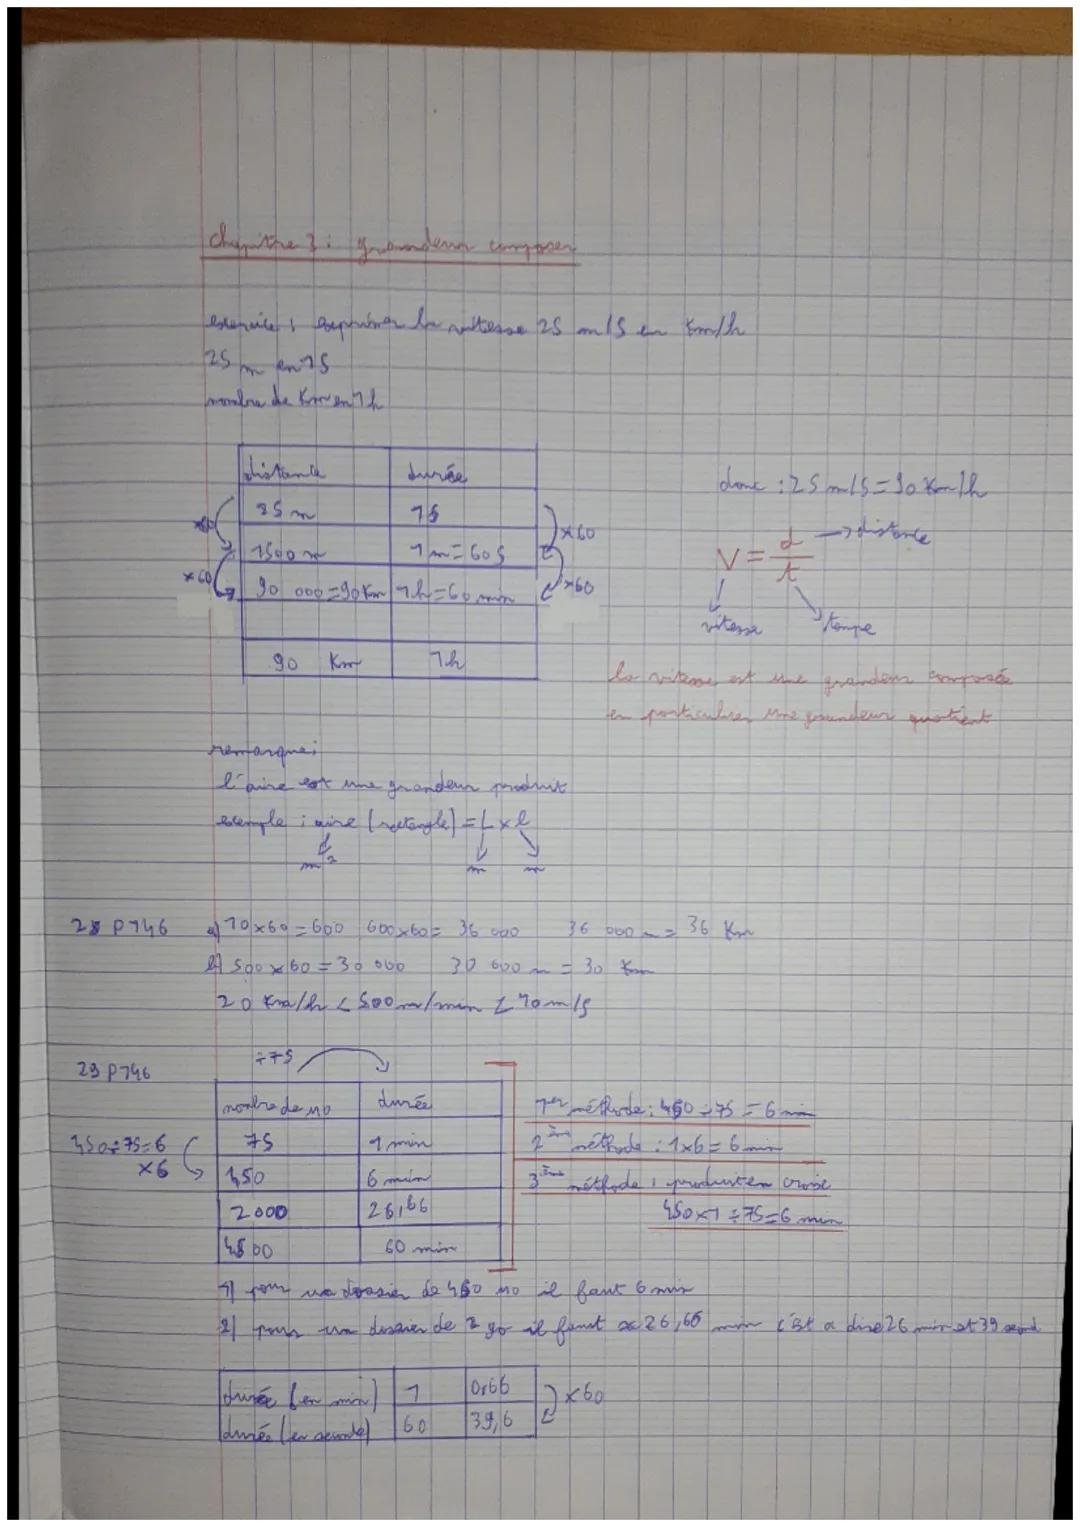 Chapitre 3 : grandeur composer
exercice : exprimer la vitesse 25 m/s en Km/h
25 m en 1 s
nombre de Km en 1 h
distance durée
25 m 1s
×60 ×60
1500 m 1 m = 60 s
×60 ×60
90 000 = 90 Km 1h = 60 min
90 Km 1h
donc : 25 m/s = 90 Km/h
V = d/t → distance
vitesse temps
la vitesse est une grandeur composée
en particulier une grandeur quotient
remarque :
l'aire est une grandeur produit
exemple : aire (rectangle) = L × l
m² m m
28 P146 a) 10×60 = 600 600×60 = 36 000 36 000 m = 36 Km
b) 500×60 = 30 000 30 000 m = 30 Km
20 Km/h < 500 m/min < 10 m/s
29 P146
÷75
nombre de Mo durée
75 1 min
450÷75=6
×6
450 6 min
2000 26,66
4500 60 min
1er méthode : 450÷75 = 6 min
2ème méthode : 1×6 = 6 min
3ème méthode : produit en croise
450×1÷75=6 min
1) pour un dossier de 450 Mo il faut 6 min
2) pour un dossier de 2 go il faut 26,66 min c'est a dire 26 min et 39 second
durée (en min) 1 0,66
×60
durée (en seconde) 60 39,6